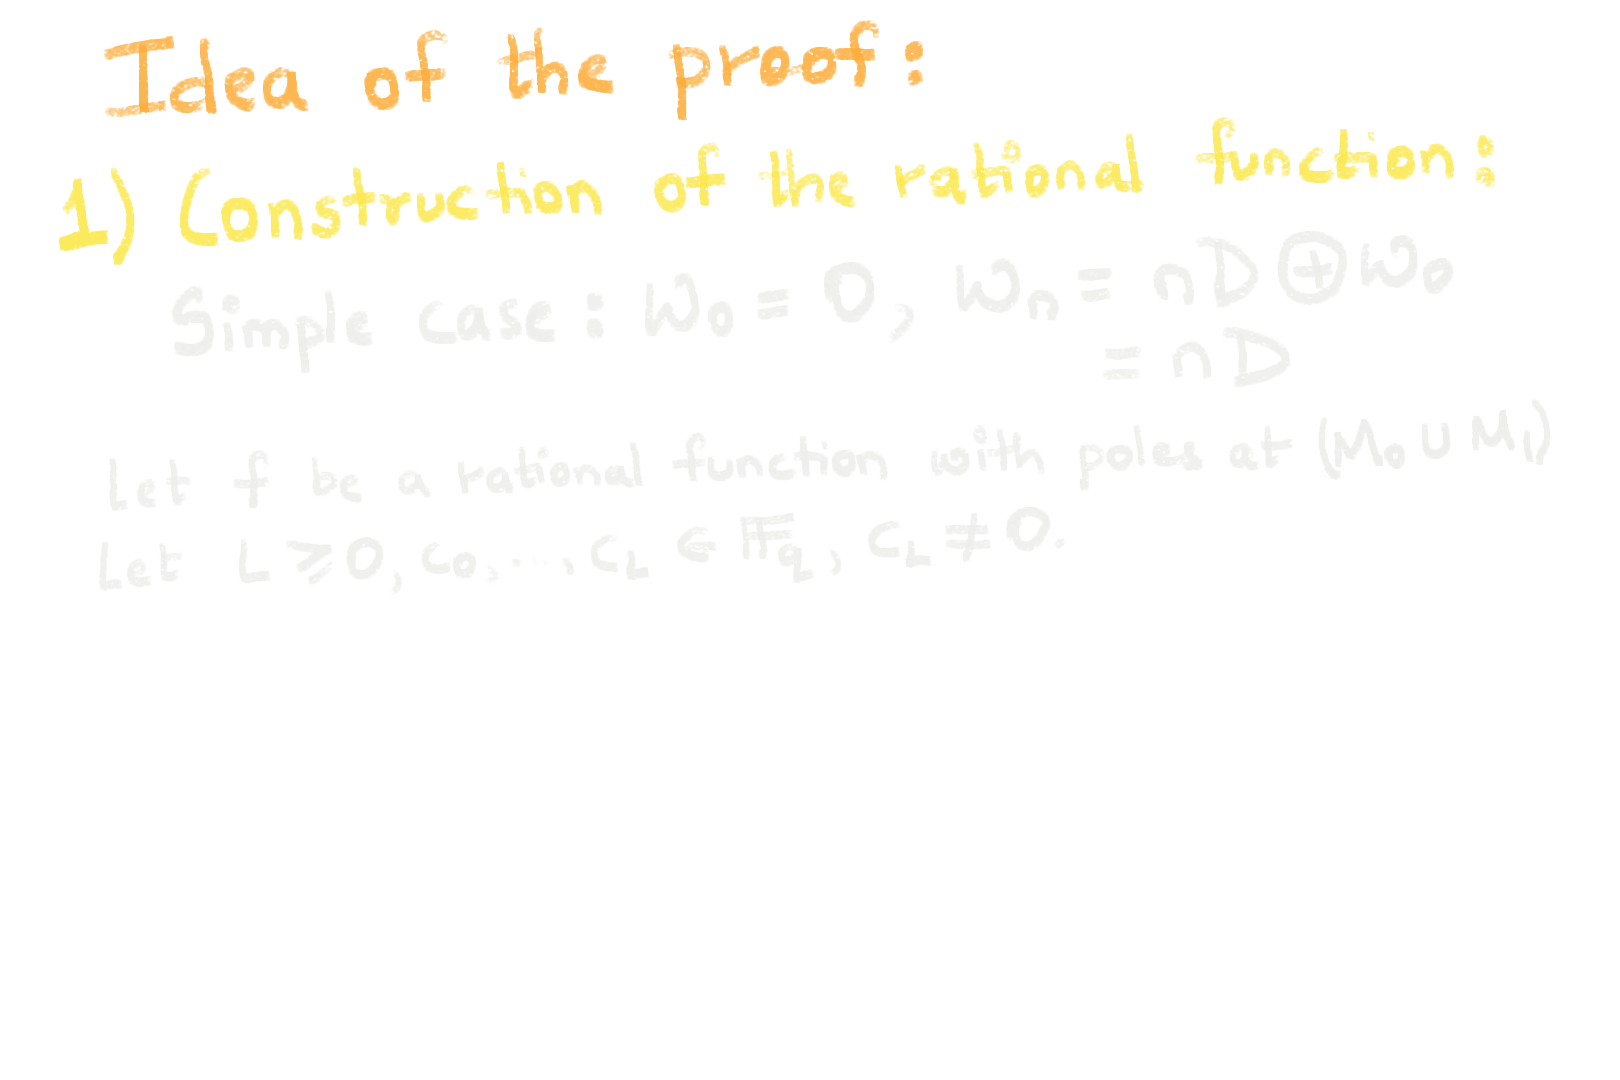 Idea of the proof:
1) Construction of the rational function:
Simple case: W₀ = 0, Wₙ = nD ⊕ W₀
= nD
Let f be a rational function with poles at (M₀ ∪ M₁)
Let L ⩾ 0, c₀, ..., c_L ∈ 𝔽_q, c_L ≠ 0.